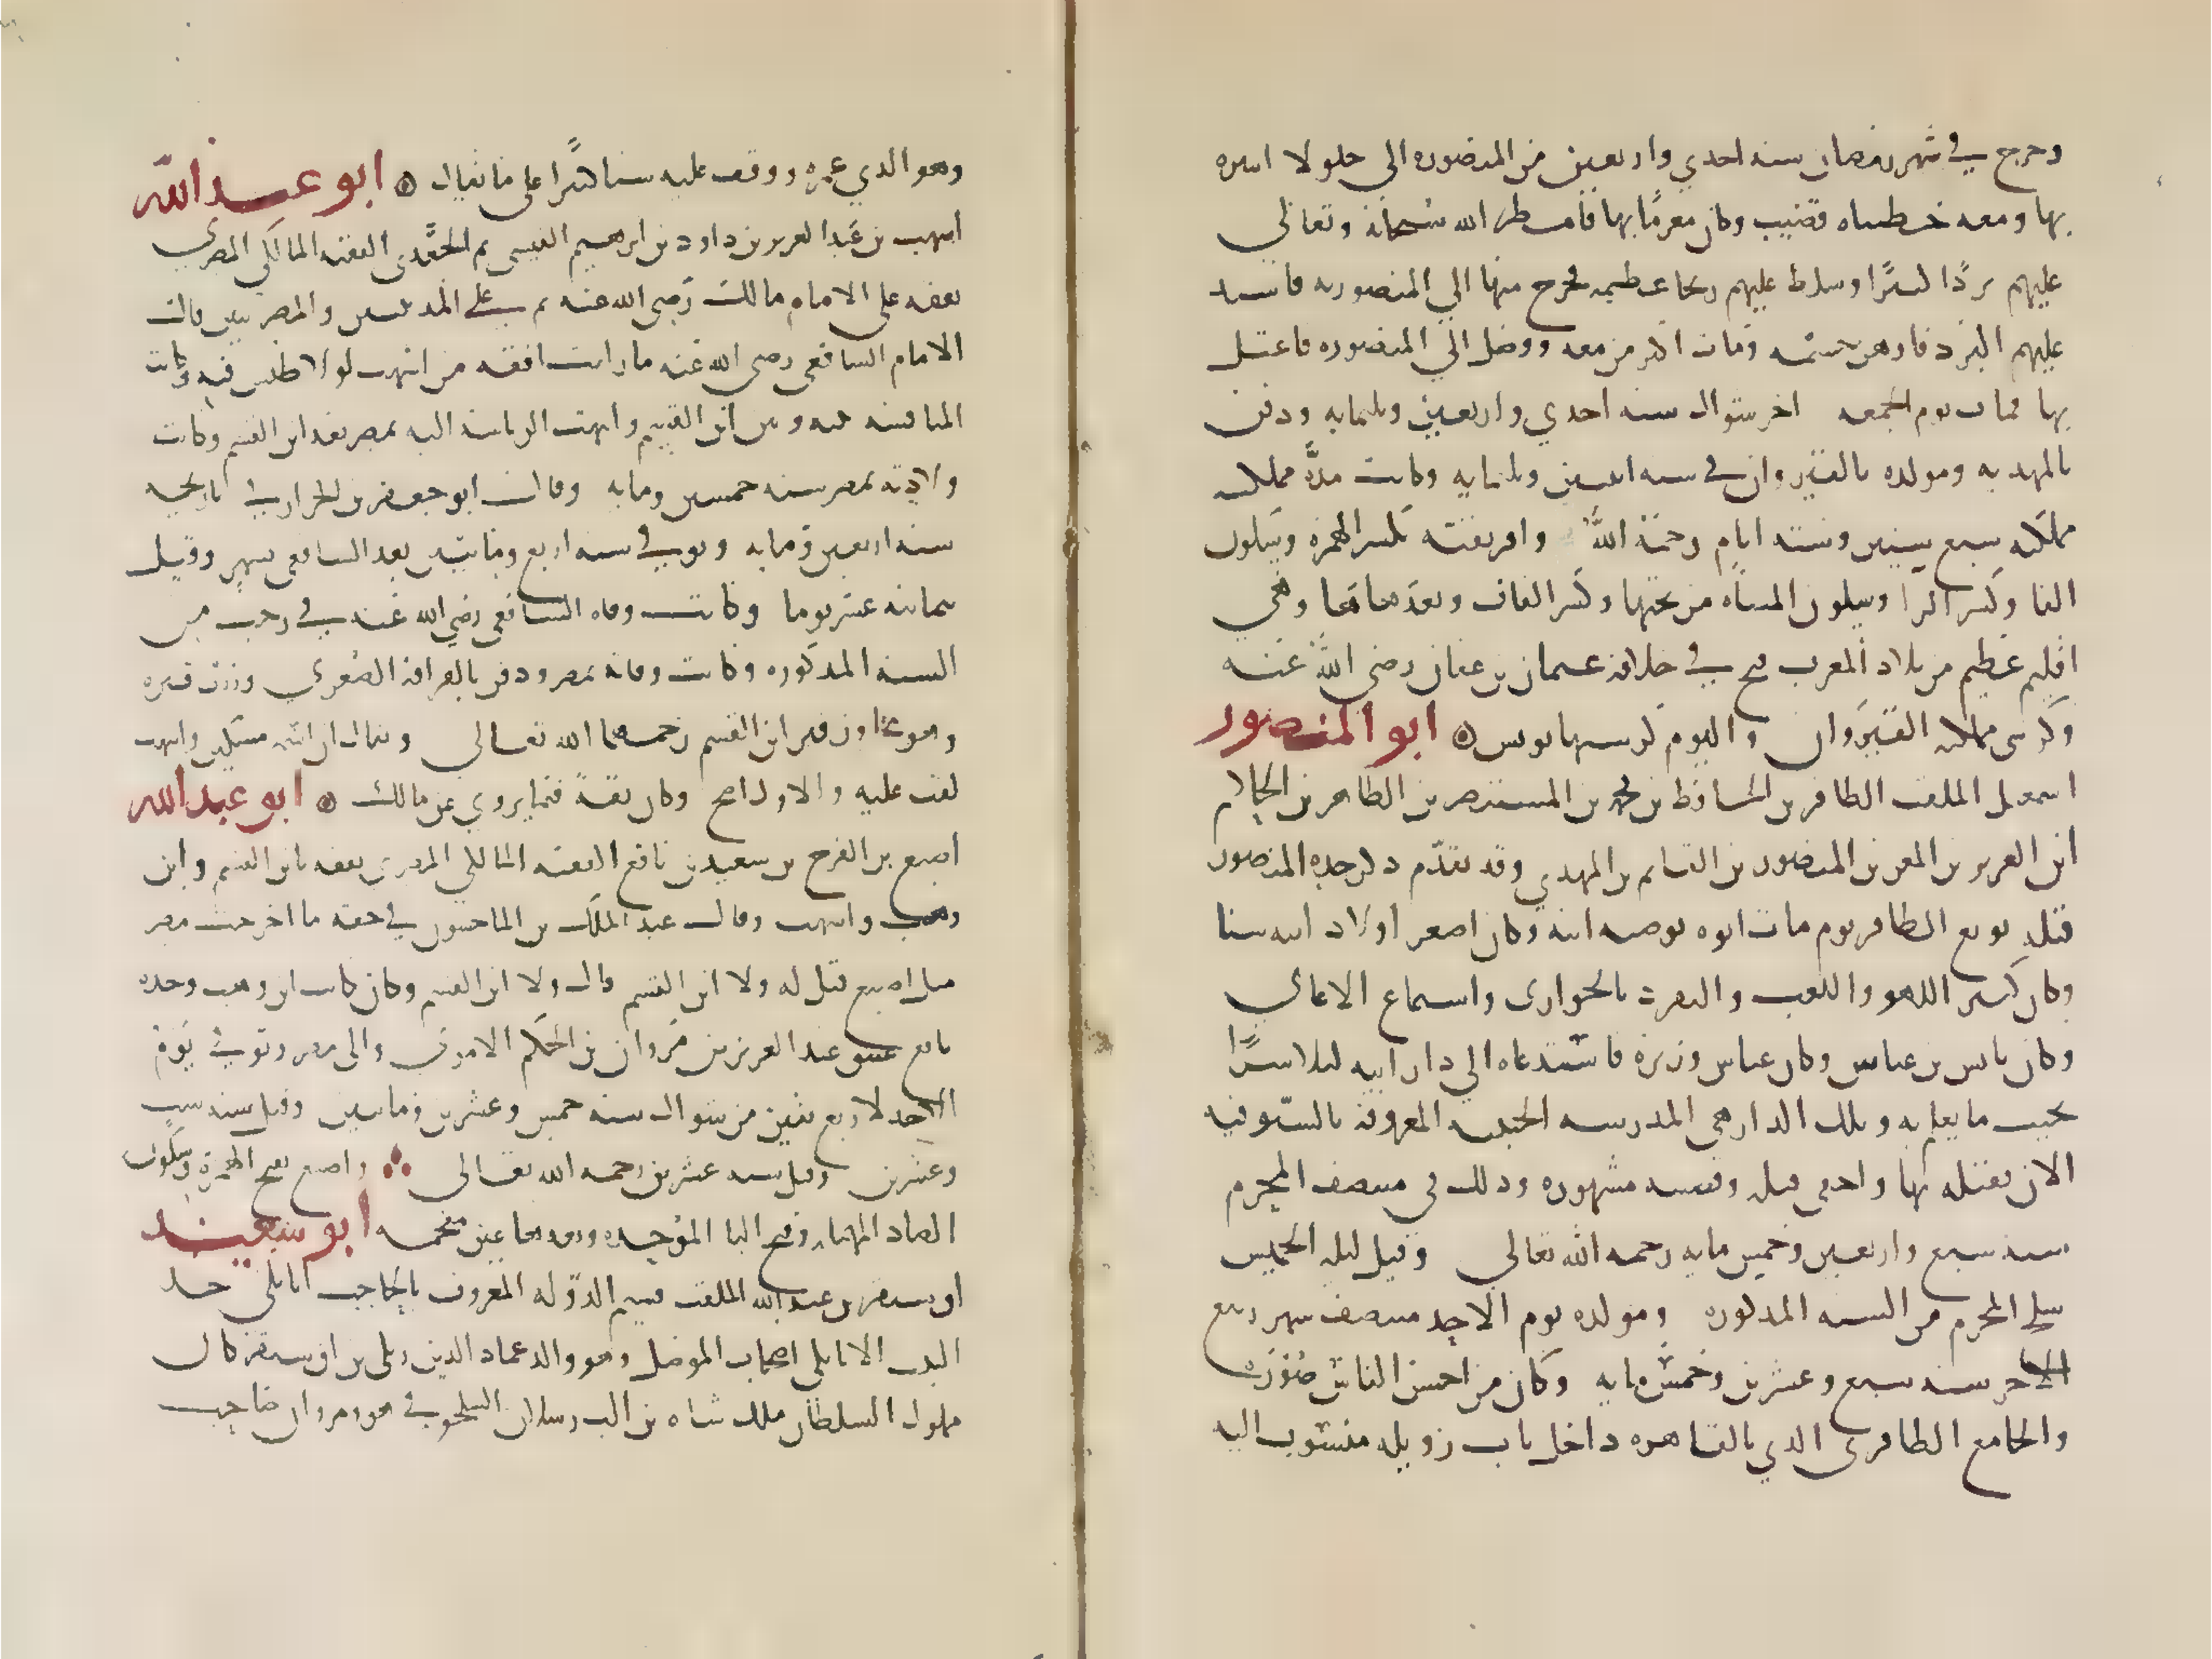 وخرج في شهر رمضان سنه احدي واربعين من المنصوره الى جلولا لتنزه
بها ومعه حظيته قضيب وكان مغرمًا بها فامطر الله سبحانه وتعالي
عليهم بردًا كثيرًا وسلط عليهم ريحا عظيمه فخرج منها الي المنصوريه فاشتد
عليهم البرد فاوهن جسمه ومات اكثر من معه ووصل الي المنصوره فاعتل
بها فمات يوم الجمعه اخر شوال سنه احدي واربعين وثلثمايه ودفن
بالمهديه ومولده بالقيروان في سنه اثنين وثلثمايه وكانت مدّة مملكته
مملكته سبع سنين وسته ايام رحمة الله وافريقيه بكسر الهمزه وسكون
الفا وكسر الرا وسكون المثناه من تحتها وكسر القاف وبعدها ها وهي
اقليم عظيم من بلاد المغرب فتح في خلافة عثمان بن عفان رضي الله عنه
وكرسي مملكته القيروان واليوم كرسيها تونس ابو المنصور
اسمعيل الملقب الظافر بن الحافظ بن محمد بن المستنصر بن الظاهر بن الحاكم
ابن العزيز بن المعز بن المنصور بن القايم بن المهدي وقد تقدّم ذكر جده المنصور
قبله بويع الظافر يوم مات ابوه بوصيه ابيه وكان اصغر اولاد ابيه سنا
وكان كثير اللهو واللعب والتفرد بالجواري واستماع الاغاني
وكان يانس بن عباس وكان عباس وزيره فاستدعاه الي دار ابيه ليلا سرًا
بحيث ما يعلم به وتلك الدار هي المدرسه الحنفيه المعروفه بالسيوفيه
الان فقتله بها واخفى قتله وقصته مشهوره وذلك في منتصف المحرم
سنه سبع واربعين وخمس مايه رحمه الله تعالي وقيل ليله الخميس
سلخ المحرم من السنه المذكوره ومولده يوم الاحد منتصف شهر ربيع
الاخر سنه سبع وعشرين وخمس مايه وكان من احسن الناس صورة
والجامع الظافري الذي بالقاهره داخل باب زويله منسوب اليه
وهو الذي عمره ووقف عليه شيا كثيرًا على ما يقال ابو عبد الله
اشهب بن عبد العزيز بن داود بن ابرهيم القيسي ثم الجعدي الفقيه المالكي المصري
تفقه على الامام مالك رضي الله عنه ثم على المدنيين والمصريين قال
الامام الشافعي رضي الله عنه ما رايت افقه من اشهب لولا طيش فيه وكانت
المنافسه بينه وبين ابن القسم وانتهت الرياسة اليه بمصر بعد ابن القسم وكانت
ولادته بمصر سنه خمسين ومايه وقال ابو جعفر بن الجزار في تاريخه
سنه اربعين ومايه وتوفي سنه اربع ومايتين بعد الشافعي بشهر وقيل
بثمانيه عشر يوما وكانت وفاه الشافعي رضي الله عنه في رجب من
السنه المذكوره وكانت وفاته بمصر ودفن بالقرافة الصغري وزرت قبره
وهو مجاور قبر ابن القسم رحمهما الله تعالى ويقال ان اسمه مسكين واشهب
لقب عليه والاول اصح وكان ثقة فيما يروي عن مالك ابو عبد الله
اصبغ بن الفرج بن سعيد بن نافع الفقيه المالكي المصري تفقه بابن القسم وابن
وهب واشهب وقال عبد الملك بن الماجشون في حقه ما اخرجت مصر
مثل اصبغ قيل له ولا ابن القسم قال ولا ابن القسم وكان كاتب ابن وهب وجده
نافع عتيق عبد العزيز بن مروان بن الحكم الاموي والي مصر وتوفي يوم
الاحد لاربع بقين من شوال سنه خمس وعشرين ومايتين وقيل سنه ست
وعشرين وقيل سنه عشرين رحمه الله تعالى واصبغ بفتح الهمزة وسكون
الصاد المهمله وفتح البا الموحده وبعدها غين معجمه ابو سعيد
اق سنقر بن عبد الله الملقب قسيم الدوله المعروف بالحاجب اتابكي جد
البيت الاتابكي اصحاب الموصل وهو والد عماد الدين زنكي بن اق سنقر كان
مملوك السلطان ملك شاه بن الب رسلان السلجوقي هو ومروان صاحب